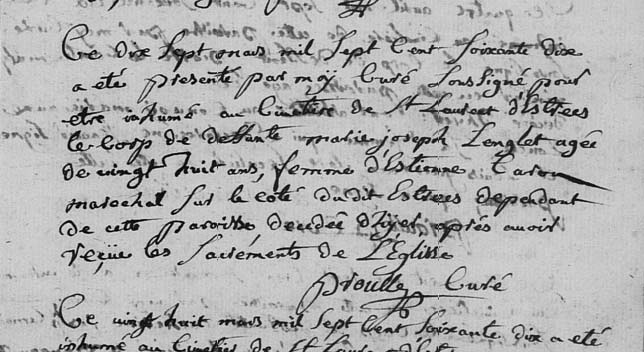 Ce dix sept mars mil sept Cent soixante dix
a eté presenté par moy Curé soussigné pour
etre inhumé au Cimetiere de St Laurent d'Estrees
le Corp de deffunte marie joseph Lenglet agée
de vingt huit ans, femme d'Estienne Caron
marechal sur le coté du dit Estrees dependant
de cette paroisse decedée d'hyer aprés avoir
reçüe les sacréments de L'Églisse
Proulle Curé
Ce vingt huit mars mil sept Cent soixante dix a eté
inhumé au Cimetiere de St